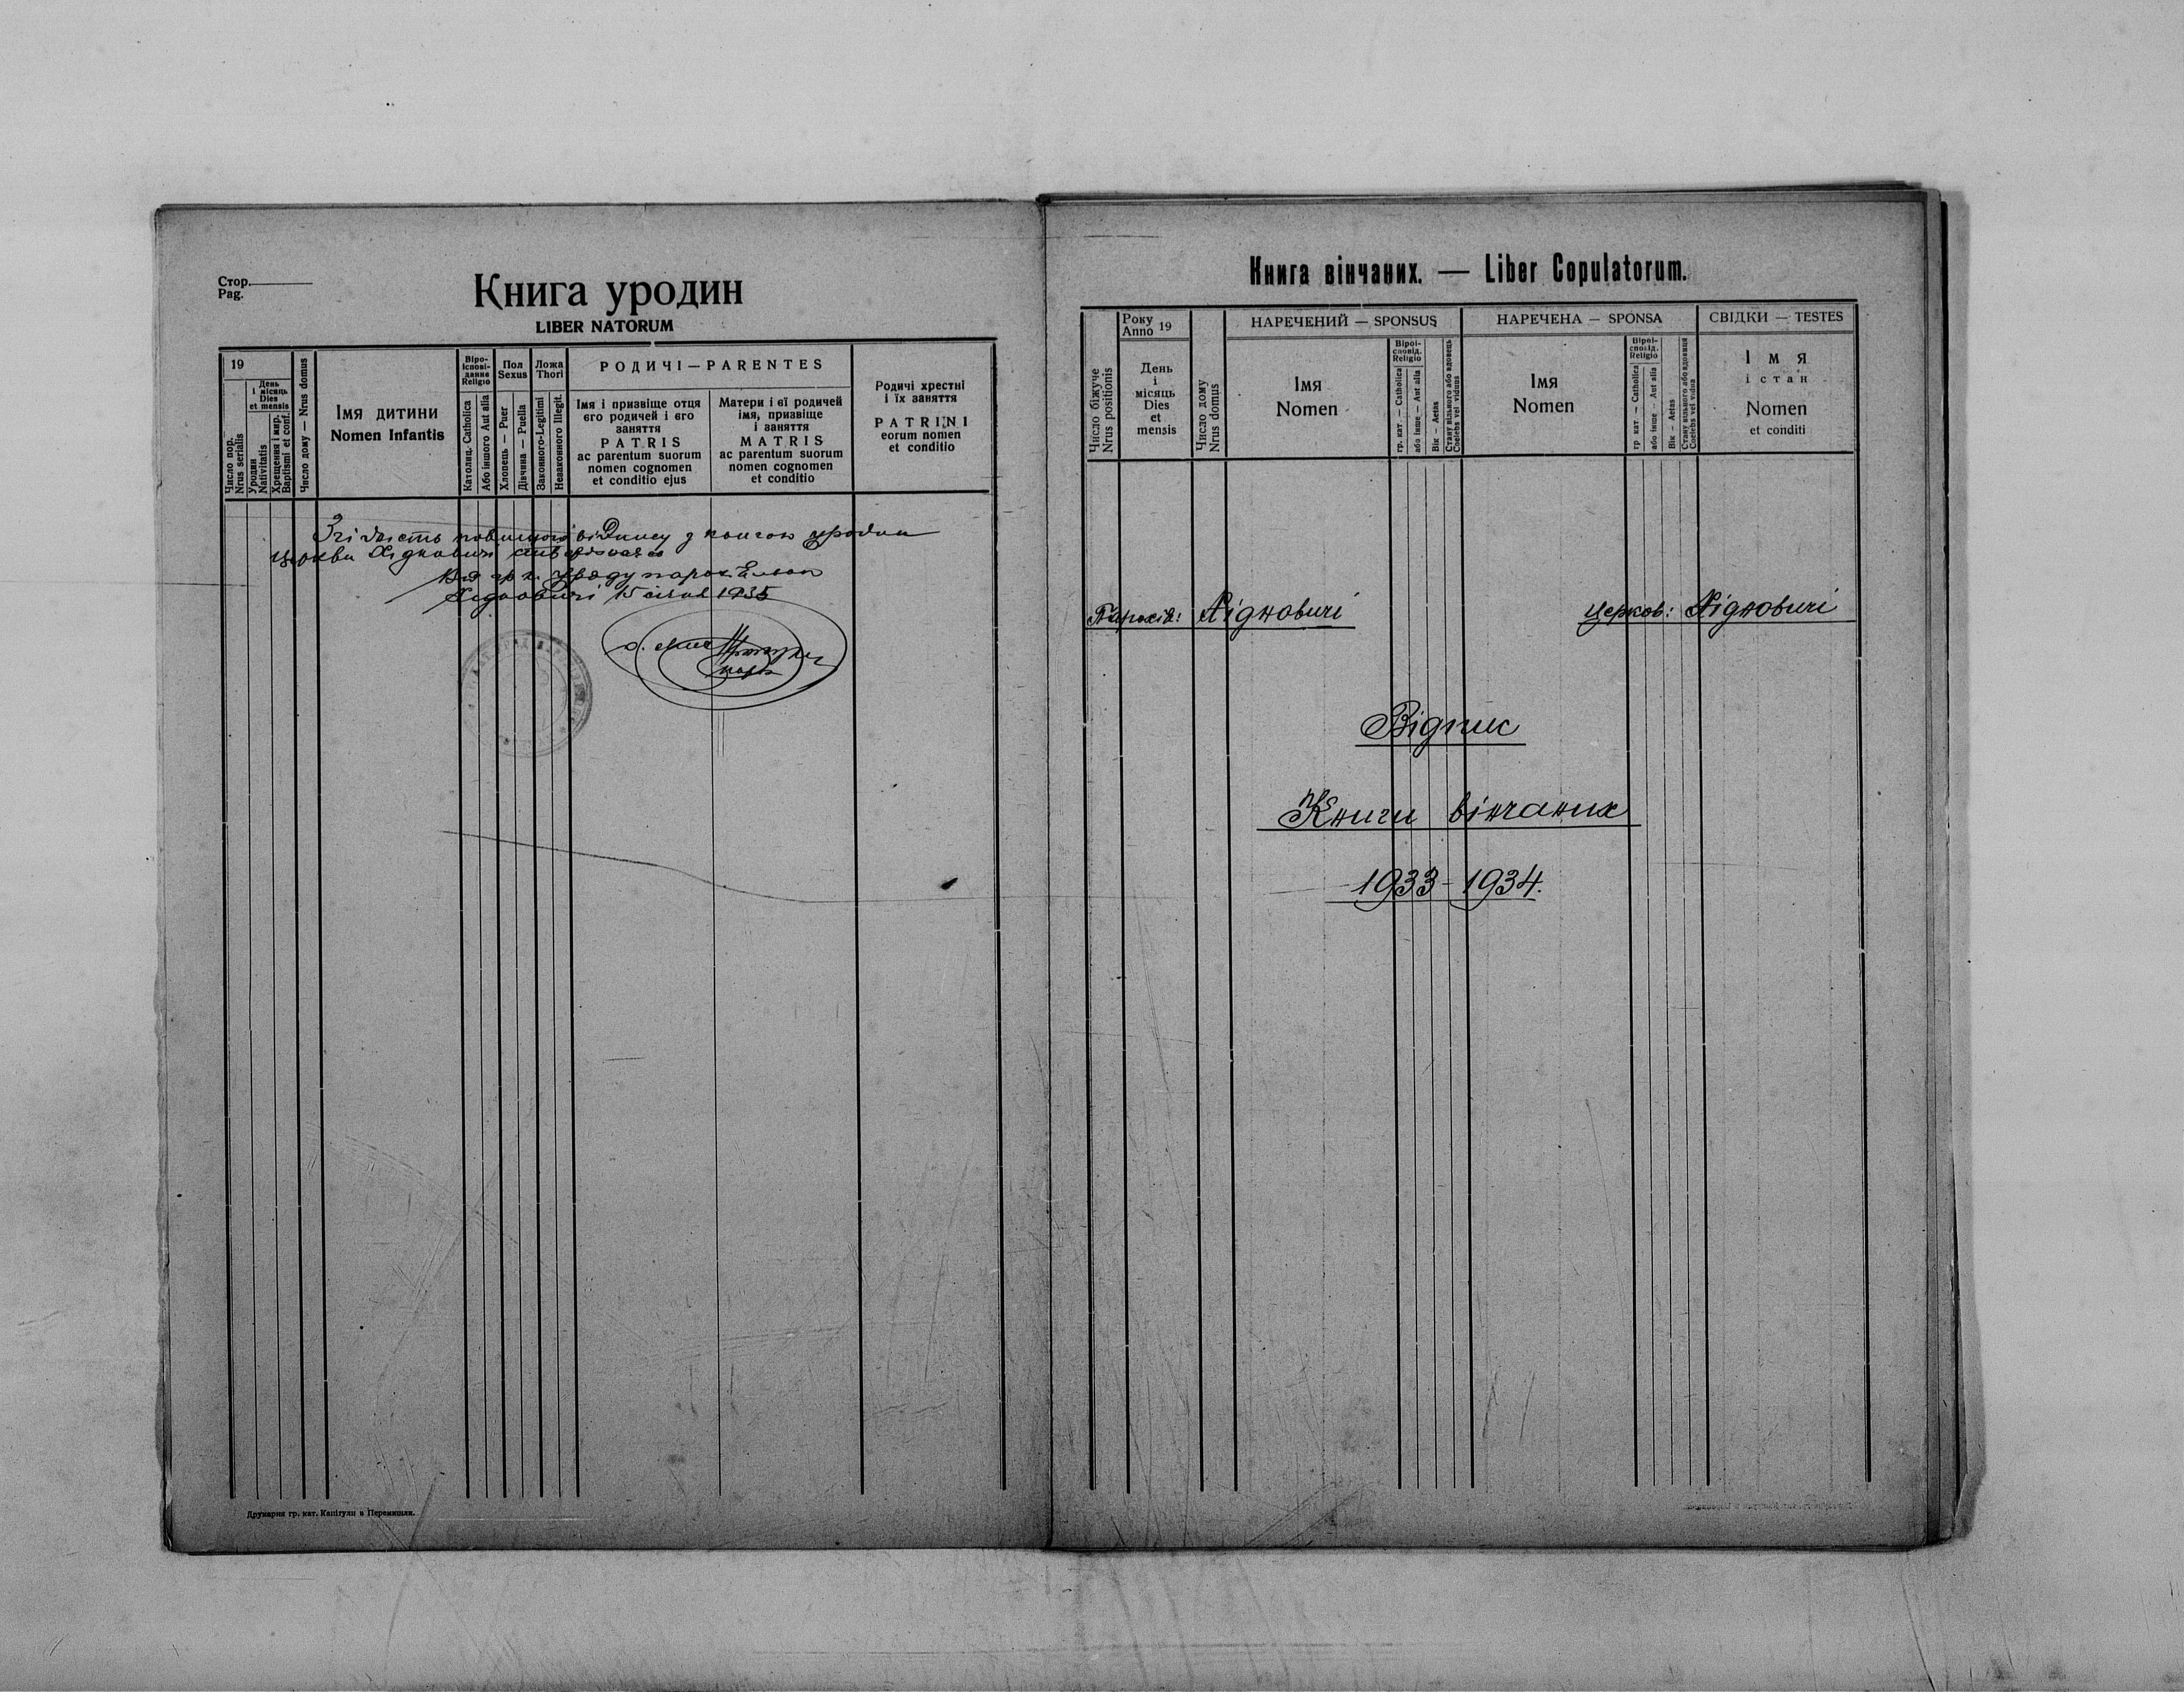 Стор.
Pag.
Книга уродин
LIBER NATORUM
19
Число пор.
Nrus serialis
День
і місяць
Dies
et mensis
Уродин
Nativitatis
Хрещення і мир.
Baptismi et conf.
Число дому — Nrus domus
Імя дитини
Nomen Infantis
Віро-
ісповi-
данне
Religio
Католиц.-Catholica
Або іншого Aut alia
Пол
Sexus
Хлопець — Puer
Дівчина — Puella
Ложа
Thori
Законного-Legitimi
Незаконного Illegit.
РОДИЧІ—PARENTES
Імя і призвіще отця
єго родичей і єго
заняття
PATRIS
ac parentum suorum
nomen cognomen
et conditio ejus
Матери і єї родичей
імя, призвіще
і заняття
MATRIS
ac parentum suorum
nomen cognomen
et conditio
Родичі хрестні
і їх заняття
PATRINI
eorum nomen
et conditio
Згідність повищого відпису з книгою уродин
церкви Хідновичі
Від гр. к. Уряду парох.
Хідновичі 15 січня 1935
о.
парох
Друкарня гр. кат. Капітули в Перемишли.
Книга вінчаних. — Liber Copulatorum.
Число біжуче
Nrus positionis
Року
Anno 19
День
і
місяць
Dies
et
mensis
Число дому
Nrus domus
НАРЕЧЕНИЙ — SPONSUS
Імя
Nomen
Віроі-
сповід.
Religio
гр. кат. — Catholica
або інше — Aut alia
Вік — Aetas
Стану вільного або вдовець
Coelebs vel viduus
НАРЕЧЕНА — SPONSA
Імя
Nomen
Віроі-
сповід.
Religio
гр кат — Catholica
або інше — Aut alia
Вік — Aetas
Стану вільного або вдовиця
Coelebs vel vidua
СВІДКИ — TESTES
Імя
і стан
Nomen
et conditi
Парохія: Хідновичі
Церков: Хідновичі
Відпис
Книги вінчаних
1933-1934.